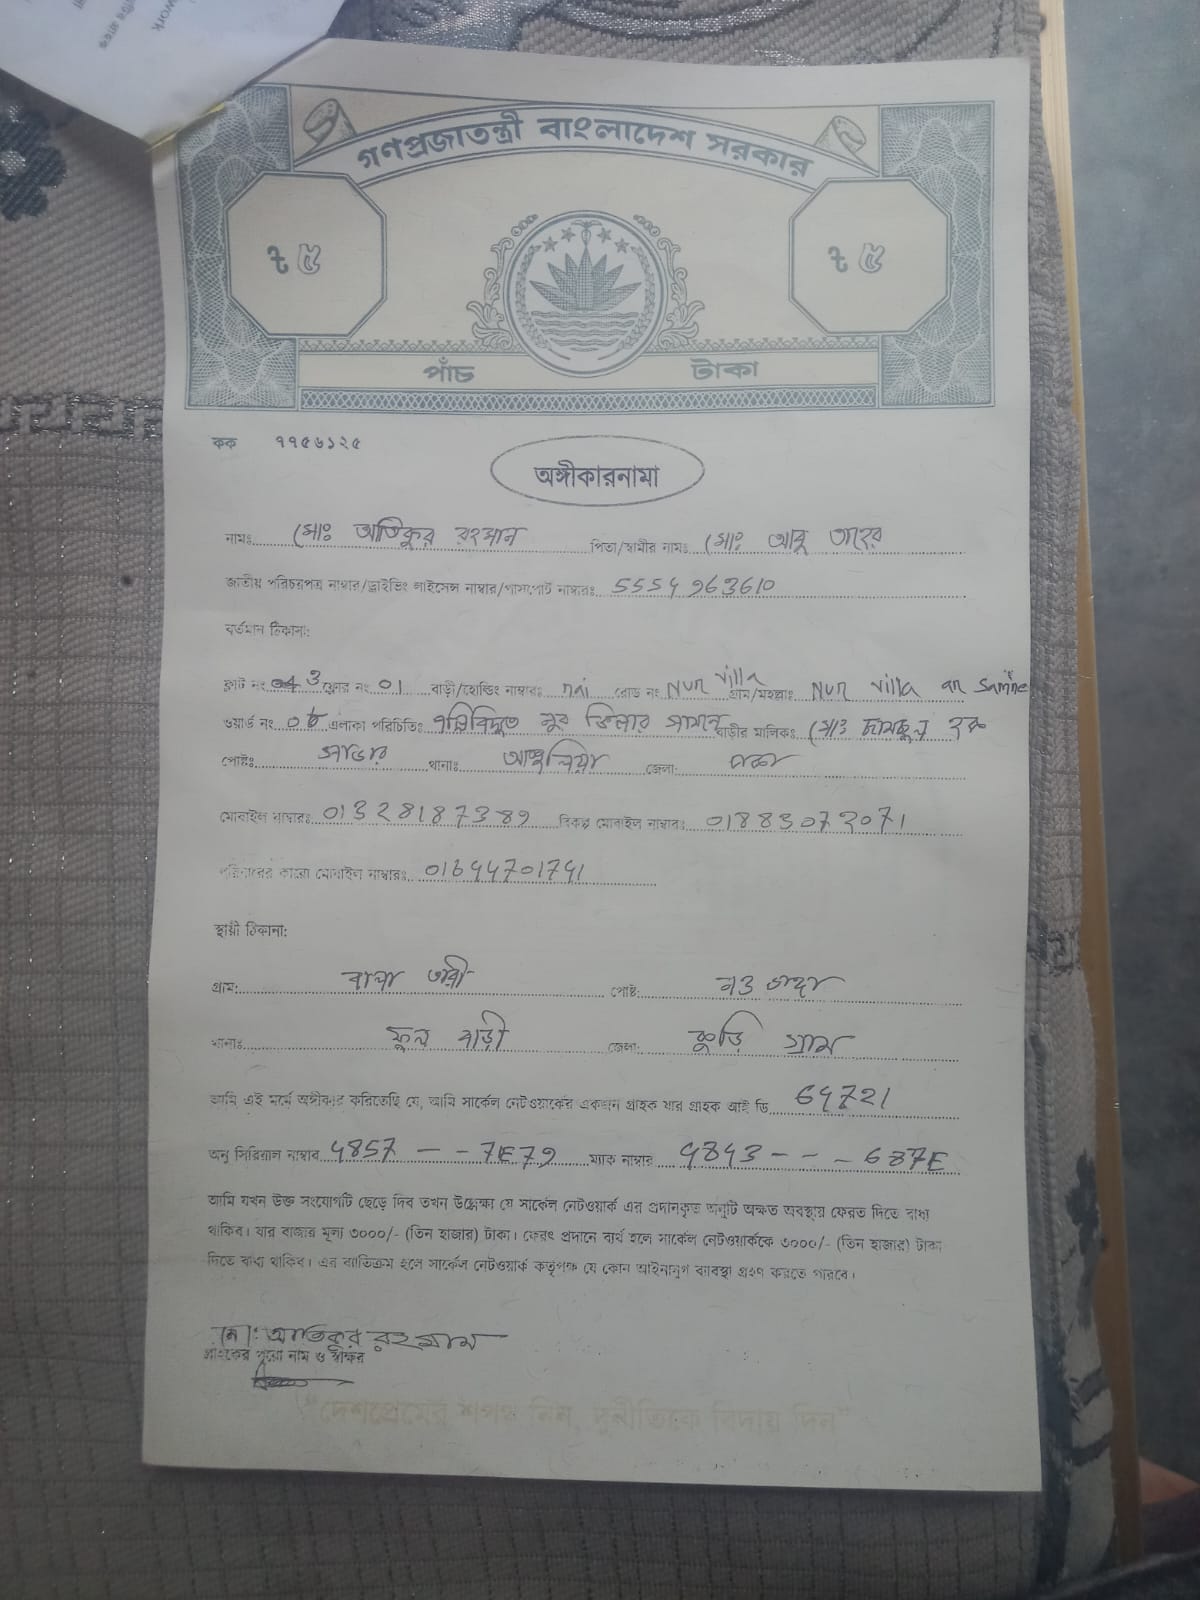 গণপ্রজাতন্ত্রী বাংলাদেশ সরকার
৳ ৫ ৳ ৫
পাঁচ টাকা
কক ৭৭৫৬১২৫
অঙ্গীকারনামা
নামঃ মোঃ আতিকুর রহমান পিতা/স্বামীর নামঃ মোঃ আবু তাহের
জাতীয় পরিচয়পত্র নাম্বার/ড্রাইভিং লাইসেন্স নাম্বার/পাসপোর্ট নাম্বারঃ 5554963610
বর্তমান ঠিকানা:
ফ্লাট নং 3 ফ্লোর নং 01 বাড়ী/হোল্ডিং নাম্বারঃ nai রোড নং Nur villa গ্রাম/মহল্লাঃ Nur villa ar samne
ওয়ার্ড নং এলাকা পরিচিতিঃ পল্লিবিদ্যুত নুর ভিলার সামনে বাড়ীর মালিকঃ মোঃ হক
পোষ্টঃ সাভার থানাঃ আশুলিয়া জেলা: ঢাকা
মোবাইল নাম্বারঃ 01328187389 বিকল্প মোবাইল নাম্বারঃ 01883072071
পরিবারের কারো মোবাইল নাম্বারঃ
স্থায়ী ঠিকানা:
গ্রাম: পোষ্ট:
থানাঃ ফুল বাড়ী জেলা: কুড়ি গ্রাম
আমি এই মর্মে অঙ্গীকার করিতেছি যে, আমি সার্কেল নেটওয়ার্কের একজন গ্রাহক যার গ্রাহক আই ডি 64721
অনু সিরিয়াল নাম্বার 4857 - - 7E79 ম্যাক নাম্বার 4843 - - - 687E
আমি যখন উক্ত সংযোগটি ছেড়ে দিব তখন উল্লেক্ষ্য যে সার্কেল নেটওয়ার্ক এর প্রদানকৃত অনুটি অক্ষত অবস্থায় ফেরত দিতে বাধ্য
থাকিব। যার বাজার মূল্য ৩০০০/- (তিন হাজার) টাকা। ফেরৎ প্রদানে ব্যর্থ হলে সার্কেল নেটওয়ার্ককে ৩০০০/- (তিন হাজার) টাকা
দিতে বাধ্য থাকিব। এর ব্যতিক্রম হলে সার্কেল নেটওয়ার্ক কর্তৃপক্ষ যে কোন আইনানুগ ব্যবস্থা গ্রহণ করতে পারবে।
মোঃ আতিকুর রহমান
গ্রাহকের পুরো নাম ও স্বাক্ষর
"দেশপ্রেমের শপথ নিন, দুর্নীতিকে বিদায় দিন"